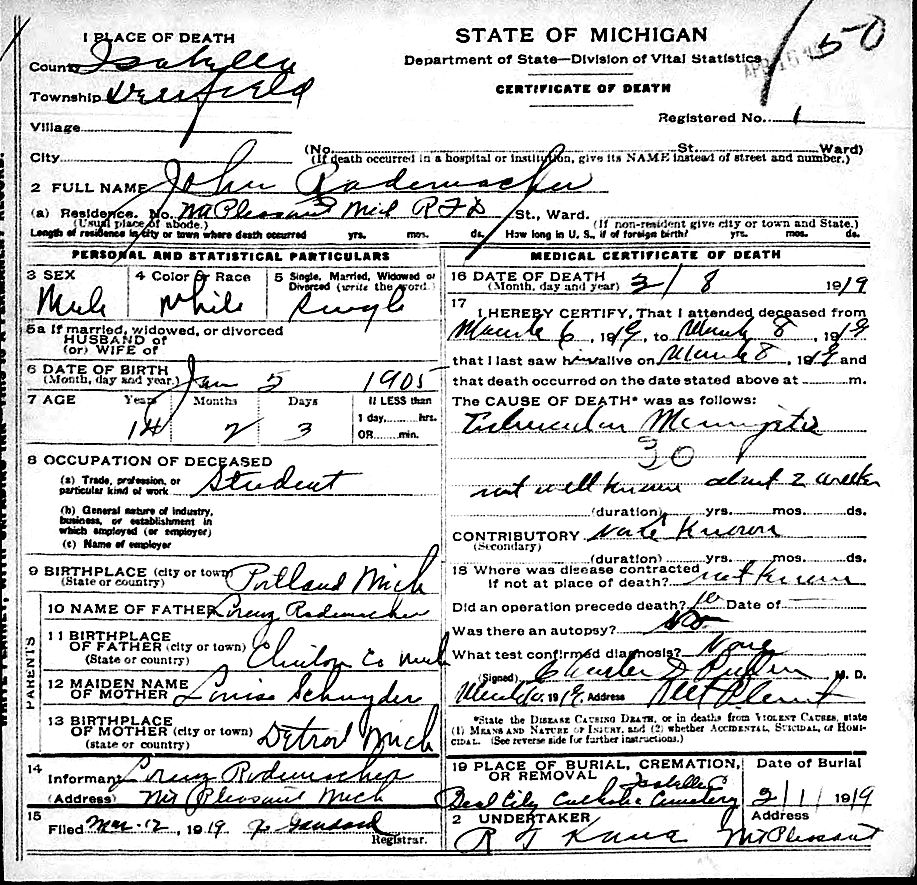 STATE OF MICHIGAN
Department of State—Division of Vital Statistics
CERTIFICATE OF DEATH
50
Registered No. 1
1 PLACE OF DEATH
County Isabella
Township Deerfield
Village
City
(No. St. Ward)
(If death occurred in a hospital or institution, give its NAME instead of street and number.)
2 FULL NAME John Rademacher
(a) Residence. No. Mt Pleasant Mich R F D St., Ward.
(Usual place of abode.) (If non-resident give city or town and State.)
Length of residence in city or town where death occurred yrs. mos. ds. How long in U. S., if of foreign birth? yrs. mos. ds.
PERSONAL AND STATISTICAL PARTICULARS
3 SEX
Male
4 Color or Race
White
5 Single, Married, Widowed or
Divorced (write the word.)
Single
5a If married, widowed, or divorced
HUSBAND of
(or) WIFE of
6 DATE OF BIRTH
(Month, day and year.) Jan 5 1905
7 AGE Years Months Days If LESS than
1 day, hrs.
OR min.
14 2 3
8 OCCUPATION OF DECEASED
(a) Trade, profession, or
particular kind of work Student
(b) General nature of industry,
business, or establishment in
which employed (or employer)
(c) Name of employer
9 BIRTHPLACE (city or town)
(State or country) Portland Mich
PARENTS
10 NAME OF FATHER Lorenz Rademacher
11 BIRTHPLACE
OF FATHER (city or town)
(State or country) Clinton Co Mich
12 MAIDEN NAME
OF MOTHER Louise Schnyder
13 BIRTHPLACE
OF MOTHER (city or town)
(state or country) Detroit Mich
14
Informant Lorenz Rademacher
(Address) Mt Pleasant Mich
15
Filed Mar. 12, 1919
Registrar.
MEDICAL CERTIFICATE OF DEATH
16 DATE OF DEATH
(Month, day and year) 3/8 1919
17
I HEREBY CERTIFY, That I attended deceased from
March 6, 1919, to March 8, 1919
that I last saw him alive on March 8, 1919 and
that death occurred on the date stated above at m.
The CAUSE OF DEATH* was as follows:
Tubercular Meningitis
30
not well known about 2 weeks
(duration) yrs. mos. ds.
CONTRIBUTORY Not Known
(Secondary)
(duration) yrs. mos. ds.
18 Where was disease contracted
if not at place of death? not known
Did an operation precede death? no Date of
Was there an autopsy? No
What test confirmed diagnosis? None
(Signed) Charles D M. D.
March 10, 1919. Address Mt Pleasant
*State the DISEASE CAUSING DEATH, or in deaths from VIOLENT CAUSES, state
(1) MEANS AND NATURE OF INJURY, and (2) whether ACCIDENTAL, SUICIDAL, or HOMI-
CIDAL. (See reverse side for further instructions.)
19 PLACE OF BURIAL, CREMATION,
OR REMOVAL Isabella Co
Beal City Catholic Cemetery
Date of Burial
1919
2 UNDERTAKER
Address
Mt Pleasant